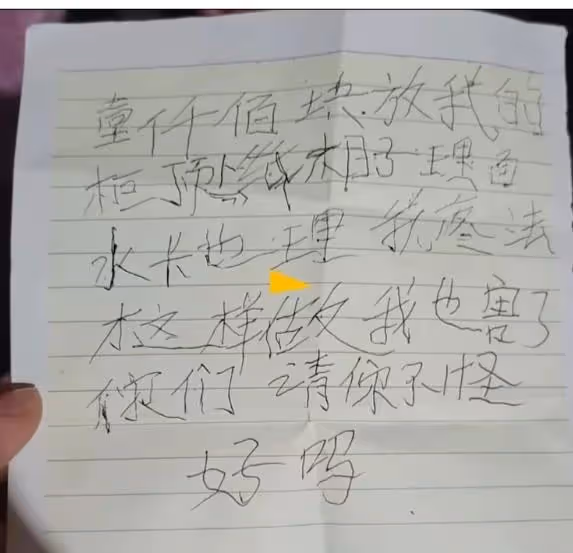 壹仟佰块放我的
柜顶纸相子理面
水长也理 我疼法
才这样做 我也害了
你们 请你不怪
好吗